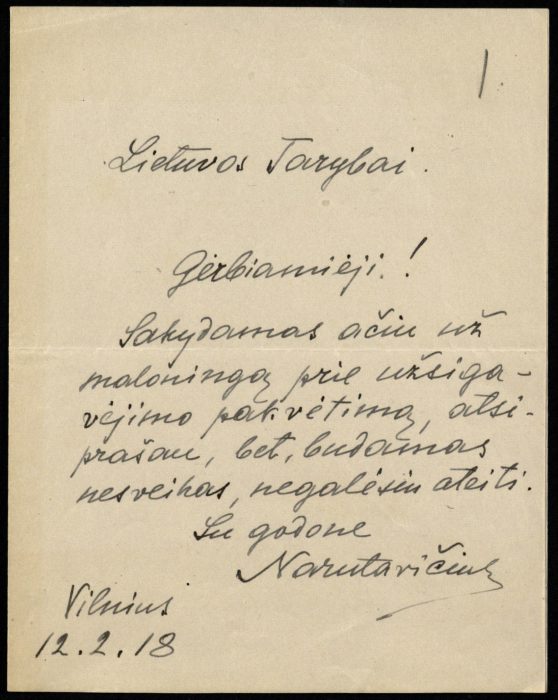 1
Lietuvos Tarybai.
Gerbiamiėji!
Sakydamas ačiu už
maloningą prie užsiga-
vėjimo pakvėtimą, atsi-
prašau, bet, budamas
nesveikas, negalėsiu ateiti.
Su godone
Narutavičius
Vilnius
12.2.18